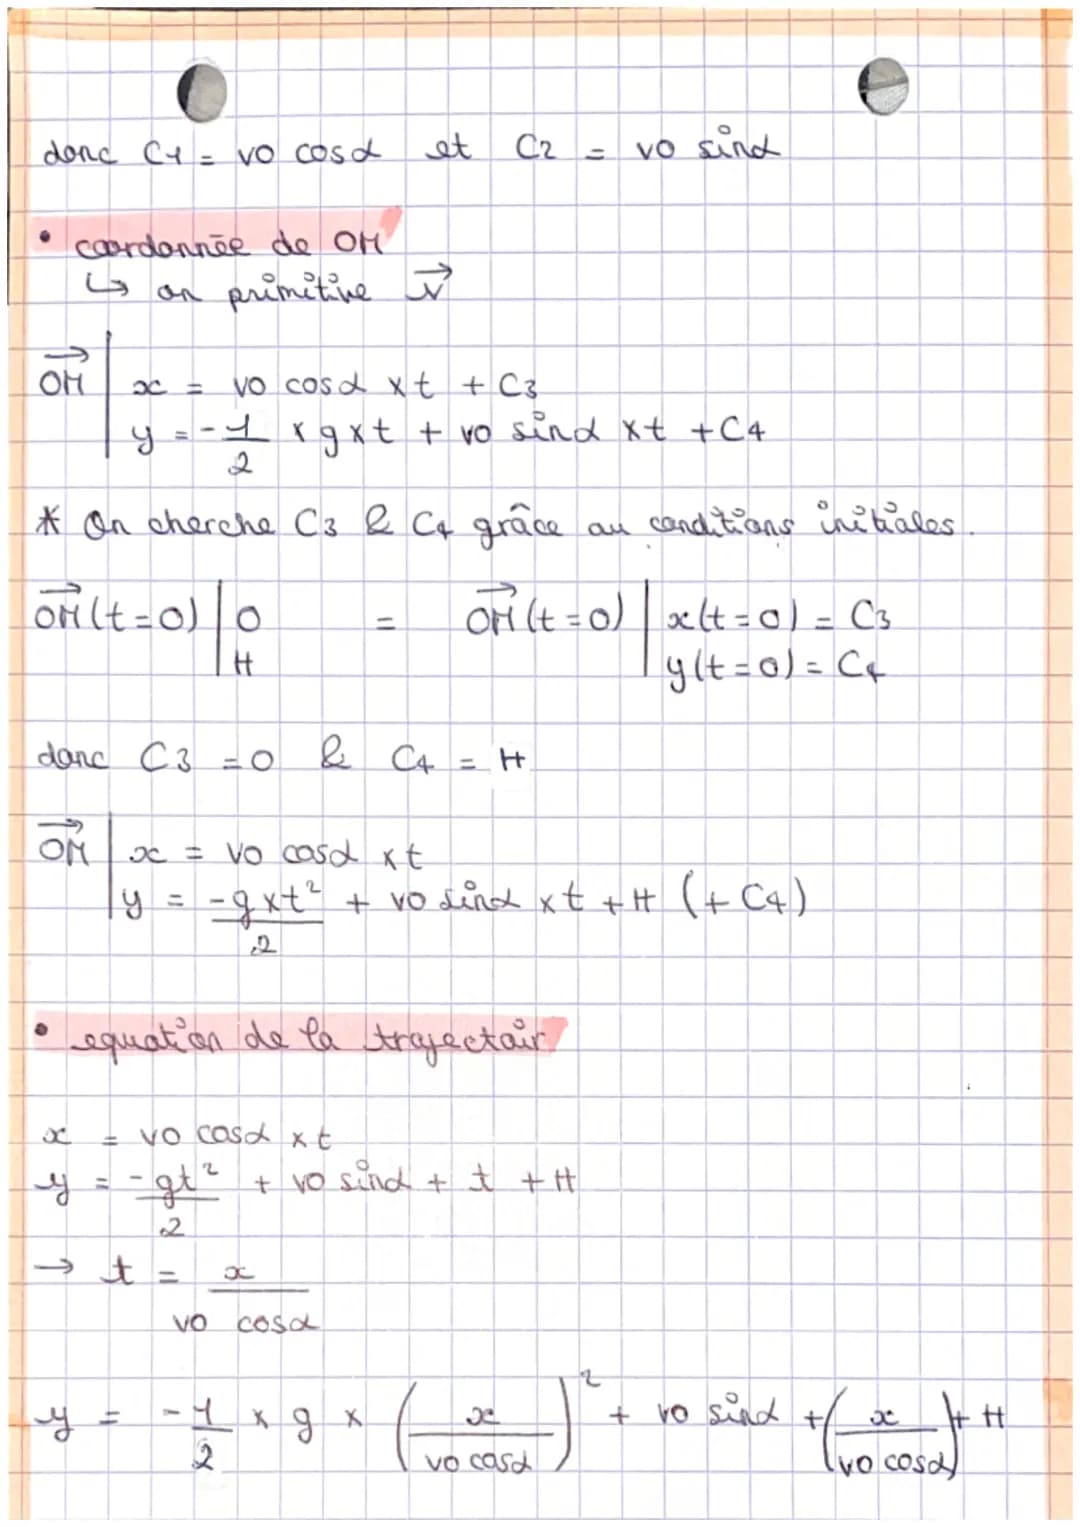 donc C1 = vo cosα et C2 = vo sinα
• coordonnée de OM
↳ on primitive v⃗
OM⃗ | x = vo cosα x t + C3
y = -1/2 x g x t + vo sinα x t + C4
* On cherche C3 & C4 grâce au conditions initiales.
OM⃗ (t=0) | 0 = OM⃗ (t=0) | x(t=0) = C3
H y(t=0) = C4
donc C3 = 0 & C4 = H
OM⃗ | x = vo cosα x t
y = -g x t²/2 + vo sinα x t + H (+ C4)
• equation de la trajectoir
x = vo cosα x t
y = -gt²/2 + vo sinα + t + H
→ t = x/vo cosα
y = -1/2 x g x (x/vo cosα)² + vo sinα + (x/vo cosα) + H